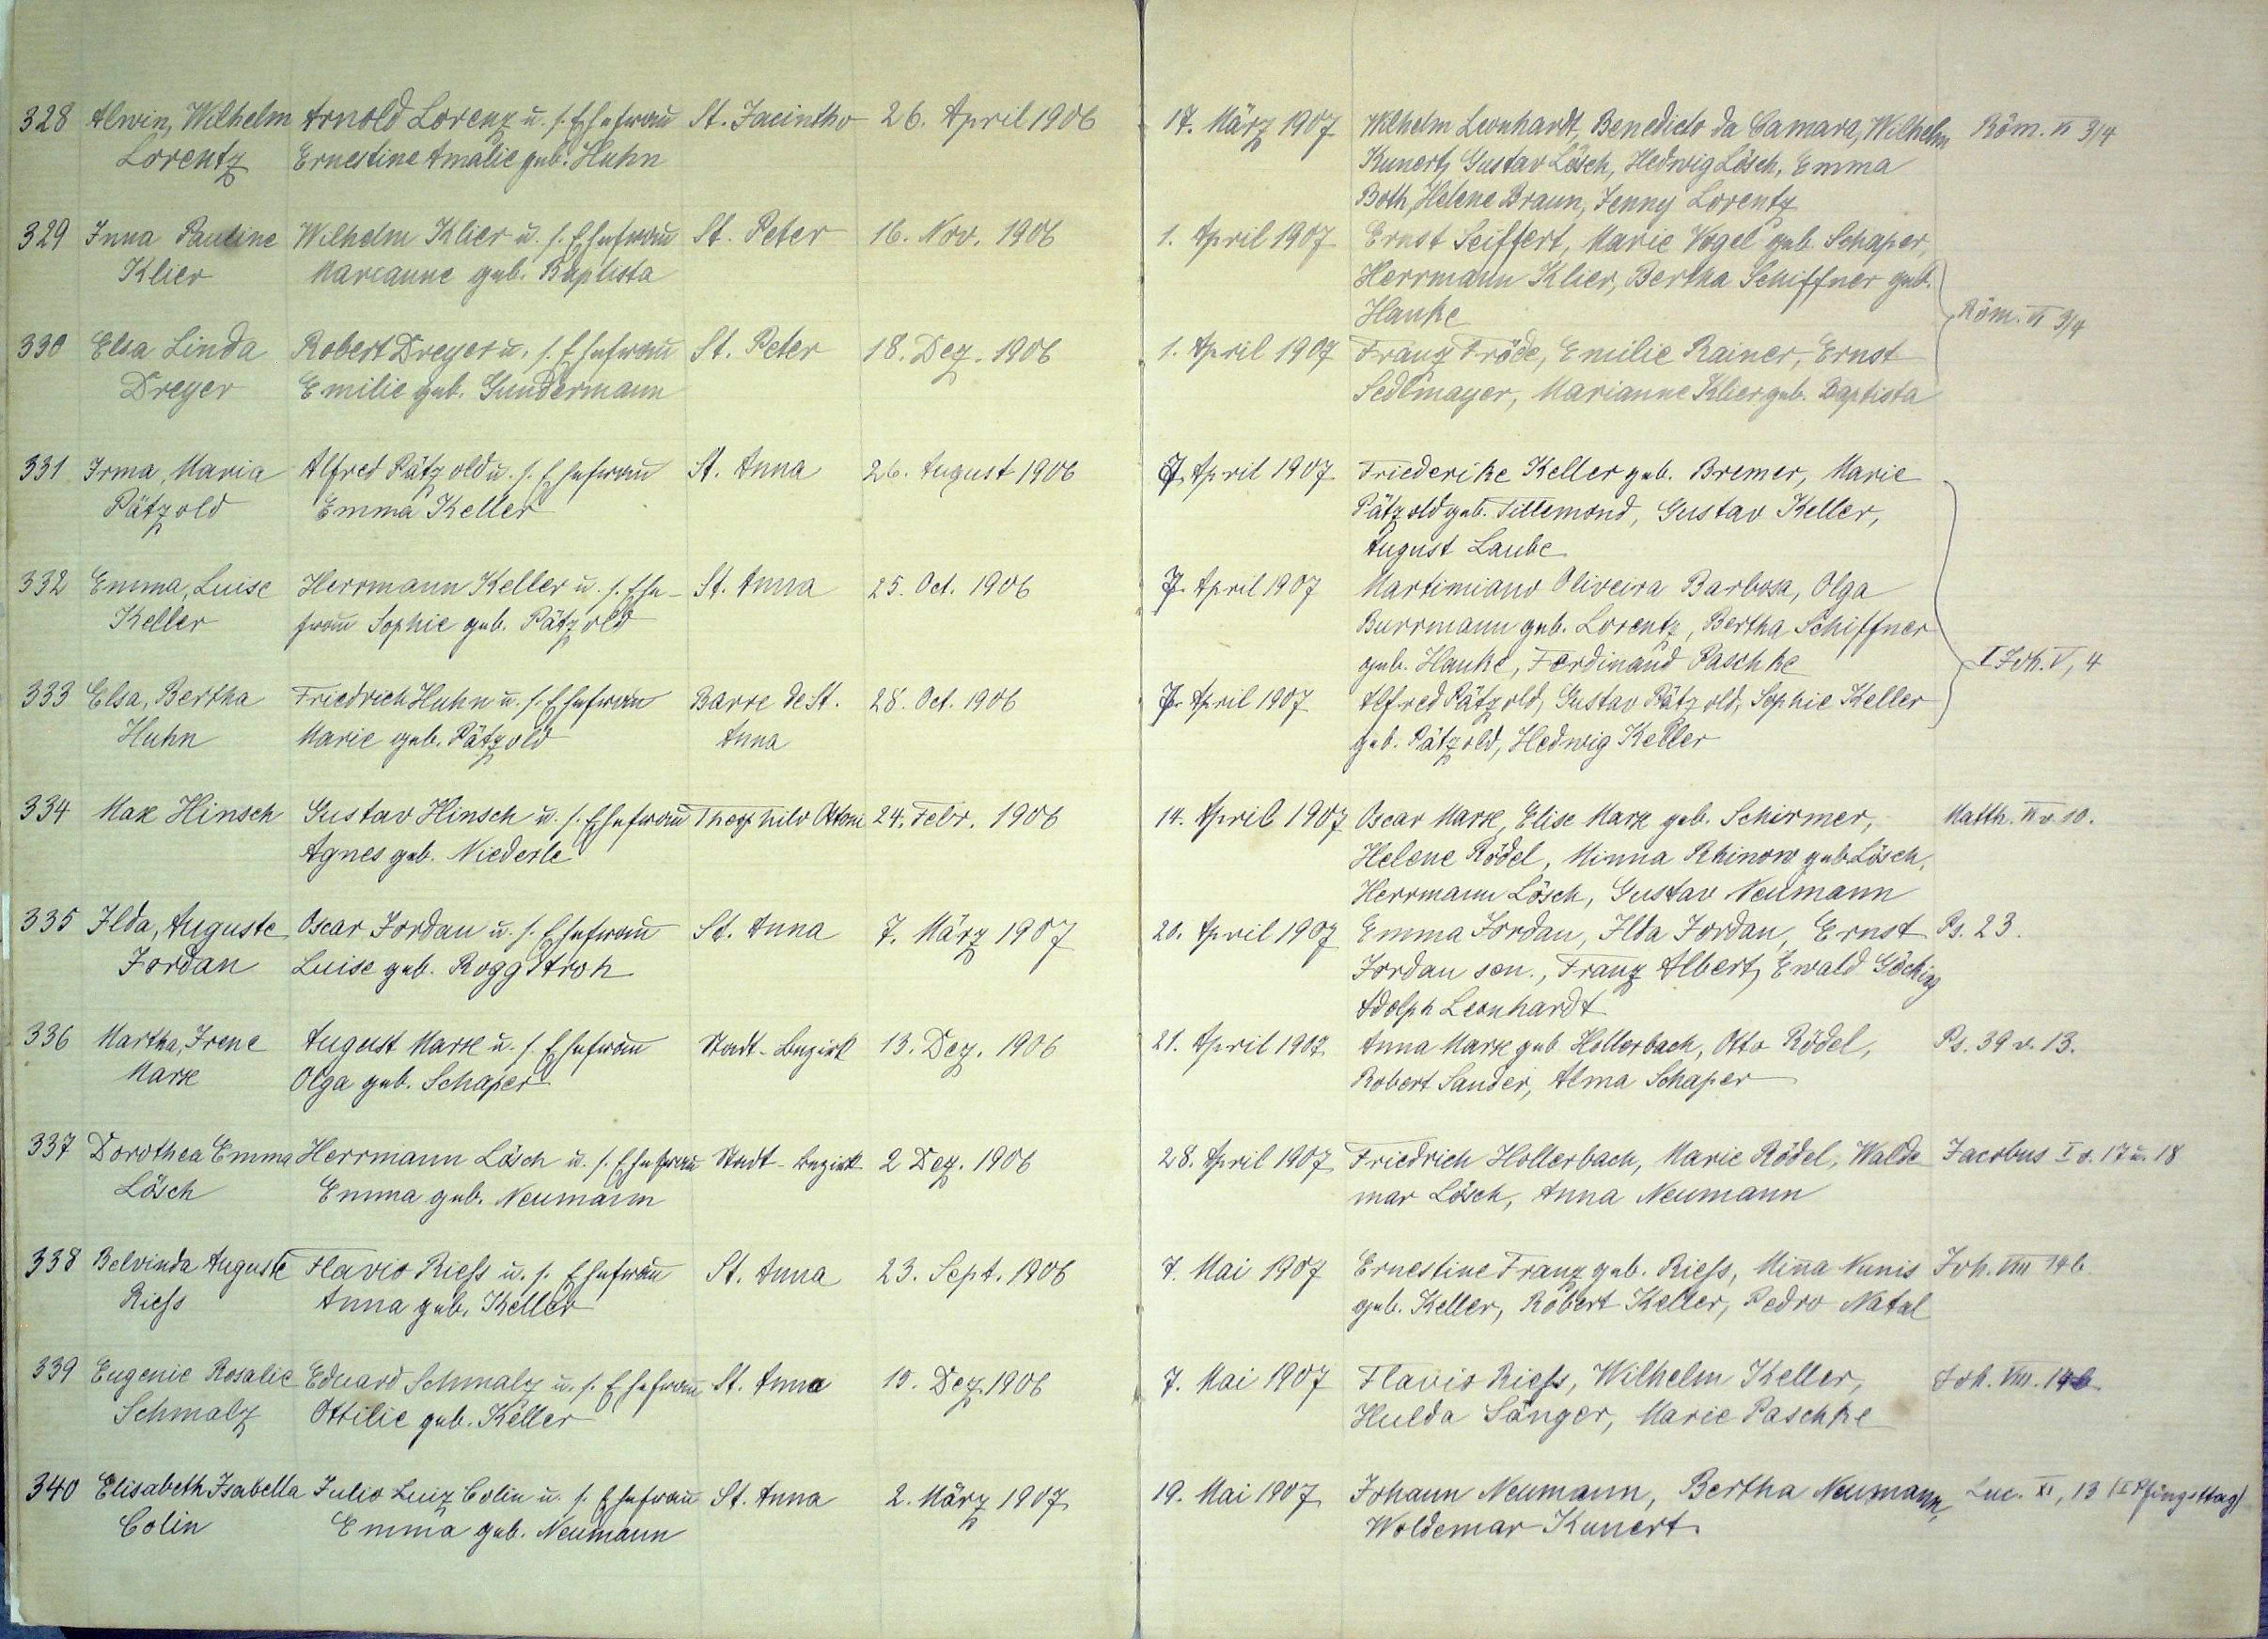 328 Alwin, Wilhelm Arnold Lorenz u. s. Ehefrau St. Jacintho 26. April 1906 17. März 1907 Wilhelm Leonhardt, Benedicto da Camara, Wilhelm Röm. VI 3/4
Lorentz Ernestine Amalie geb. Huhn Kunert, Gustav Lösch, Hedwig Lösch, Emma
Both, Helene Braun, Jenny Lorentz
329 Inna Pauline Wilhelm Klier u. s. Ehefrau St. Peter 16. Nov. 1906 1. April 1907 Ernst Seiffert, Marie Vogel geb. Schaper,
Klier Marianne geb. Baptista Herrmann Klier, Bertha Schiffner geb.
Hanke Röm. VI 3/4
330 Elsa Linda Robert Dreyer u. s. Ehefrau St. Peter 18. Dez. 1906 1. April 1907 Franz Fröde, Emilie Rainer, Ernst
Dreyer Emilie geb. Gundermann Sedlmayer, Marianne Klier geb. Baptista
331 Irma, Maria Alfred Pätzold u. s. Ehefrau St. Anna 26. August 1906 7. April 1907 Friederike Keller geb. Bremer, Marie
Pätzold Emma Keller Pätzold geb. Tillemond, Gustav Keller,
August Laube
332 Emma, Luise Herrmann Keller u. s. Ehe- St. Anna 25. Oct. 1906 7. April 1907 Martimiano Oliveira Barbosa, Olga
Keller frau Sophie geb. Pätzold Burrmann geb. Lorentz, Bertha Schiffner
geb. Hanke, Ferdinand Paschke I Joh. V, 4
333 Elsa, Bertha Friedrich Huhn u. s. Ehefrau Barre de St. 28. Oct. 1906 7. April 1907 Alfred Pätzold, Gustav Pätzold, Sophie Keller
Huhn Marie geb. Pätzold Anna geb. Pätzold, Hedwig Keller
334 Max Hinsch Gustav Hinsch u. s. Ehefrau Theophilo Ottoni 24. Febr. 1906 14. April 1907 Oscar Marx, Elise Marx geb. Schirmer, Matth. VI v 10.
Agnes geb. Niederle Helene Rödel, Minna Rhinow geb Lösch,
Herrmann Lösch, Gustav Neumann
335 Ilda, Auguste Oscar Jordan u. s. Ehefrau St. Anna 7. März 1907 20. April 1907 Emma Jordan, Ilda Jordan, Ernst Ps. 23.
Jordan Luise geb. Roggstroh Jordan sen., Franz Albert, Ewald Göcking
Adolph Leonhardt
336 Martha, Irene August Marx u. s. Ehefrau Stadt-Bezirk 13. Dez. 1906 21. April 1907 Anna Marx geb Hollerbach, Otto Rödel, Ps. 39 v. 13.
Marx Olga geb. Schaper Robert Sander, Alma Schaper
337 Dorothea Emma Herrmann Lösch u. s. Ehefrau Stadt-Bezirk 2 Dez. 1906 28. April 1907 Friedrich Hollerbach, Marie Rödel, Walde Jacobus I v. 17 u. 18
Lösch Emma geb. Neumann mar Lösch, Anna Neumann
338 Belvinda Auguste Flavio Rieß u. s. Ehefrau St. Anna 23. Sept. 1906 7. Mai 1907 Ernestine Franz geb. Rieß, Mina Nunis Joh. VIII 14b
Rieß Anna geb. Keller geb. Keller, Robert Keller, Pedro Natal
339 Eugenie Rosalie Eduard Schmalz u. s. Ehefrau St. Anna 15. Dez. 1906 7. Mai 1907 Flavio Rieß, Wilhelm Keller, Joh. VIII. 14b
Schmalz Ottilie geb. Keller Hulda Sänger, Marie Paschke
340 Elisabeth Isabella Julio Luiz Colin u. s. Ehefrau St. Anna 2. März 1907 19. Mai 1907 Johann Neumann, Bertha Neumann, Luc. XI, 13 (I Pfingsttag)
Colin Emma geb. Neumann Woldemar Kunert